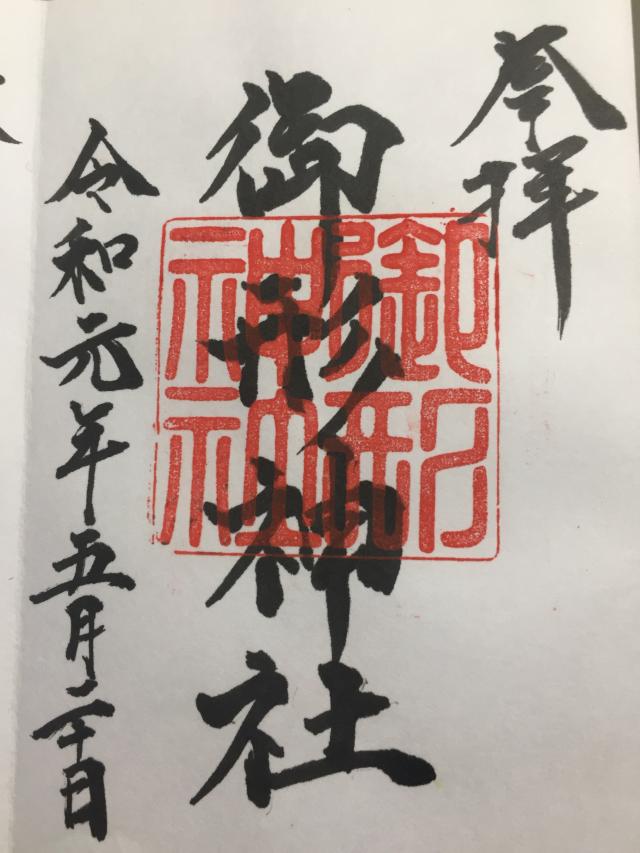 奉拝
御形神社
御形
神社
令和元年五月二十日